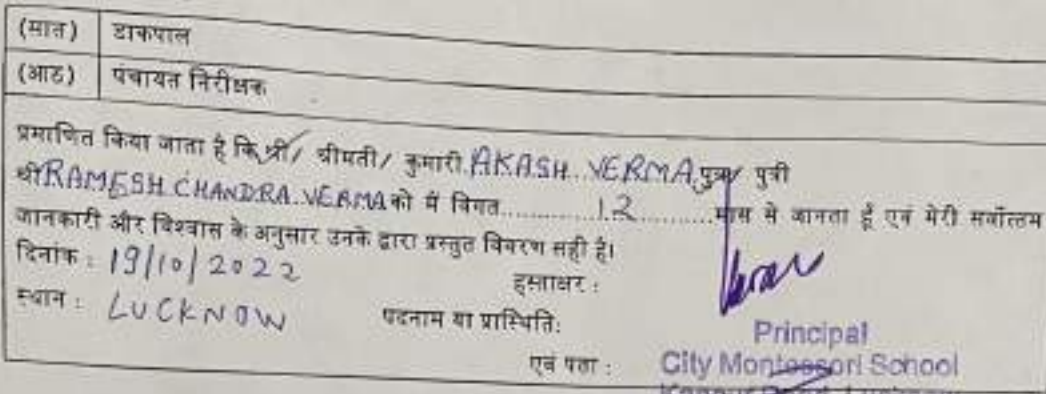 (सात) डाकपाल
(आठ) पंचायत निरीक्षक
प्रमाणित किया जाता है कि श्री/ श्रीमती/ कुमारी AKASH..VERMA पुत्र/ पुत्री
श्री RAMESH CHANDRA VERMA को मैं विगत............12............मास से जानता हूँ एवं मेरी सर्वोत्तम
जानकारी और विश्वास के अनुसार उनके द्वारा प्रस्तुत विवरण सही है।
दिनांक : 19/10/2022 हस्ताक्षर :
स्थान : LUCKNOW पदनाम या प्रास्थिति:
Principal
एवं पता : City Montessori School